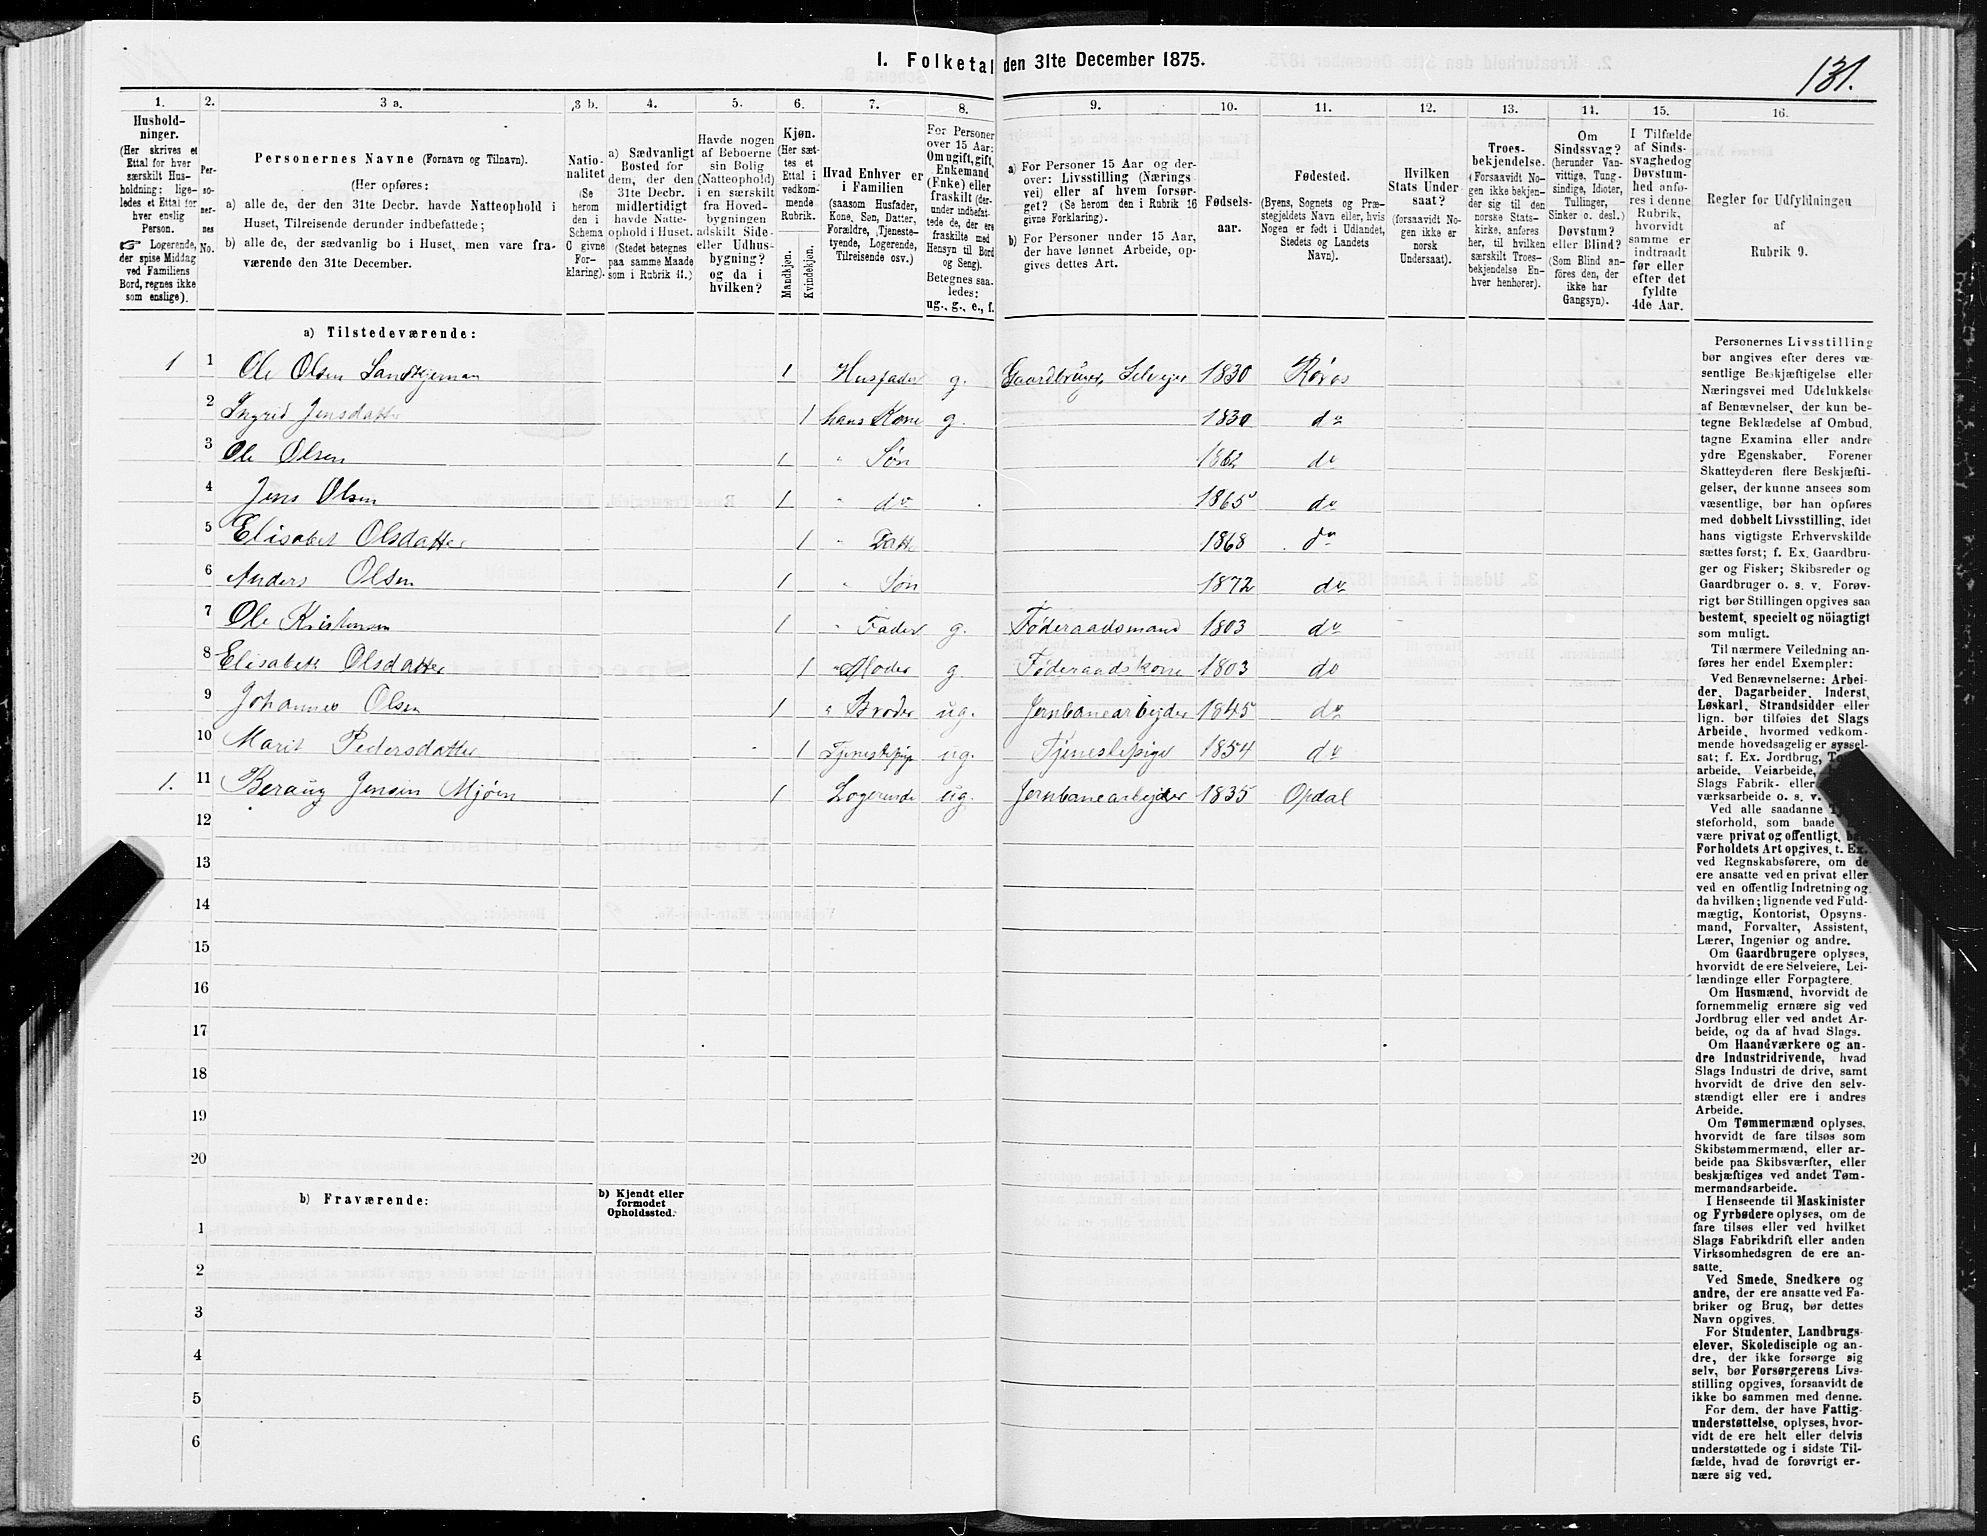 131.
1. Folketal den 31te December 1875.
1. 2. 3 a. 3 b. 4. 5. 6. 7. 8. 9. 10. 11. 12. 13. 14. 15. 16.
Husholdninger.
(Her skrives et
Ettal for hver
særskilt Husholdning; ligeledes et Ettal for
hver enslig
Person.
☞ Logerende,
der spise Middag
ved Familiens
Bord, regnes ikke
som enslige).
Personernes No.
Personernes Navne (Fornavn og Tilnavn).
(Her opføres:
a) alle de, der den 31te Decbr. havde Natteophold i
Huset, Tilreisende derunder indbefattede;
b) alle de, der sædvanlig bo i Huset, men vare fraværende den 31te December.
Nationalitet
(Se
herom
den i
Schema
C givne
Forklaring).
a) Sædvanligt
Bosted for
dem, der den
31te Decbr.
midlertidigt
havde Natteophold i Huset.
(Stedet betegnes
paa samme Maade
som i Rubrik 11.)
Havde nogen
af Beboerne
sin Bolig
(Natteophold)
i en særskilt
fra Hovedbygningen
adskilt Side- eller Udhusbygning?
og da i
hvilken?
Kjøn.
(Her sættes et
Ettal i
vedkommende
Rubrik.
Mandkjøn.
Kvindekjøn.
Hvad Enhver er
i Familien
(saasom Husfader,
Kone, Søn, Datter,
Forældre, Tjenestetyende, Logerende,
Tilreisende osv.)
For Personer
over 15 Aar:
Om ugift, gift,
Enkemand
(Enke) eller
fraskilt (derunder indbefattede de, der ere
fraskilte med
Hensyn til Bord
og Seng).
Betegnes saaledes:
ug., g., e., f.
a) For Personer 15 Aar og derover: Livsstilling (Næringsvei) eller af hvem forsørget? (Se herom den i Rubrik 16
givne Forklaring).
b) For Personer under 15 Aar,
der have lønnet Arbeide, opgives dettes Art.
Fødselsaar.
Fødested.
(Byens, Sognets og Præstegjeldets Navn eller, hvis
Nogen er født i Udlandet,
Stedets og Landets
Navn).
Hvilken
Stats Undersaat?
(forsaavidt Nogen ikke er
norsk
Undersaat).
Troesbekjendelse.
(Forsaavidt Nogen ikke bekjender sig til den
norske Statskirke, anføres
her, til hvilken
særskilt Troesbekjendelse Enhver henhører).
Om
Sindssvag?
(herunder Vanvittige, Tungsindige, Idioter,
Tullinger,
Sinker o. desl.)
Døvstum?
eller Blind?
(Som Blind anføres den, der
ikke har
Gangsyn).
I Tilfælde
af Sindssvaghed og
Døvstumhed anføres i denne
Rubrik,
hvorvidt
samme er
indtraadt
før eller
efter det
fyldte
4de Aar.
Regler for Udfyldningen
af
Rubrik 9.
a) Tilstedeværende:
1 1 Ole Olsen 1 Husfader g. Gaardbruger, Selvejer 1830 Røros
2 Ingrid Jensdatter 1 hans Kone g. 1830 do
3 Ole Olsen 1 " Søn 1862 do
4 Jens Olsen 1 " do 1865 do
5 Elisabet Olsdatter 1 " Datte 1868 do
6 Anders Olsen 1 " Søn 1872 do
7 Ole Kristensen 1 " Fader g. Føderaadsmand 1803 do
8 Elisabeth Olsdatter 1 " Moder g Føderaadskone 1803 do
9 Johannes Olsen 1 " Broder ug. Jernbanearbejder 1845 do
10 Marit Pedersdatter 1 Tjenestepige ug. Tjenestepige 1854 do
1. 11 Jensen Mjøen 1 Logerende ug. Jernbanearbejder 1835 Opdal
12
13
14
15
16
17
18
19
20
b) Fraværende: b) Kjendt eller
formodet
Opholdssted.
1
2
3
4
5
6
Personernes Livsstilling
bør angives efter deres væsentlige Beskjæftigelse eller
Næringsvei med Udelukkelse
af Benævnelser, der kun betegne Beklædelse af Ombud,
tagne Examina eller andre
ydre Egenskaber. Forener
Skatteyderen flere Beskjæftigelser, der kunne ansees som
væsentlige, bør han opføres
med dobbelt Livsstilling, idet
hans vigtigste Erhvervskilde
sættes først; f. Ex. Gaardbruger og Fisker; Skibsreder og
Gaardbruger o. s. v. Forøvrigt bør Stillingen opgives saa
bestemt, specielt og nöiagtigt
som muligt.
Til nærmere Veiledning anføres her endel Exempler:
Ved Benævnelserne: Arbeider, Dagarbeider, Inderst,
Løskarl, Strandsidder eller
lign. bør tilføies det Slags
Arbeide, hvormed vedkommende hovedsagelig er sysselsat; f. Ex. Jordbrug,
arbeide, Veiarbeide,
Slags Fabrik- eller
værksarbeide o. s. v.
Ved alle saadanne
steforhold, som baade
være privat og offentlig,
Forholdets Art opgives, t. Ex.
ved Regnskabsførere, om de
ere ansatte ved en privat eller
ved en offentlig Indretning og
da hvilken; lignende ved Fuldmægtig, Kontorist, Opsynsmand, Forvalter, Assistent,
Lærer, Ingeniør og andre.
Om Gaardbrugere oplyses,
hvorvidt de ere Selveiere, Leilændinge eller Forpagtere.
Om Husmænd, hvorvidt de
fornemmelig ernære sig ved
Jordbrug eller ved andet Arbeide, og da af hvad Slags.
Om Haandværkere og andre Industridrivende, hvad
Slags Industri de drive, samt
hvorvidt de drive den selvstændigt eller ere i andres
Arbeide.
Om Tømmermænd oplyses,
hvorvidt de fare tilsøs som
Skibstømmermænd, eller arbeide paa Skibsværfter, eller
beskjæftiges ved andet Tømmermandsarbeide.
I Henseende til Maskinister
og Fyrbødere oplyses, om de
fare tilsøs eller ved hvilket
Slags Fabrikdrift eller anden
Virksomhedsgren de ere ansatte.
Ved Smede, Snedkere og
andre, der ere ansatte ved Fabriker og Brug, bør dettes
Navn opgives.
For Studenter, Landbrugselever, Skoledisciple og andre, der ikke forsørge sig
selv, bør Forsørgerens Livsstilling opgives, forsaavidt de
ikke bo sammen med denne.
For dem, der have Fattigunderstøttelse, oplyses, hvorvidt de ere helt eller delvis
understøttede og i sidste Tilfælde, hvad de forøvrigt ernære sig ved.